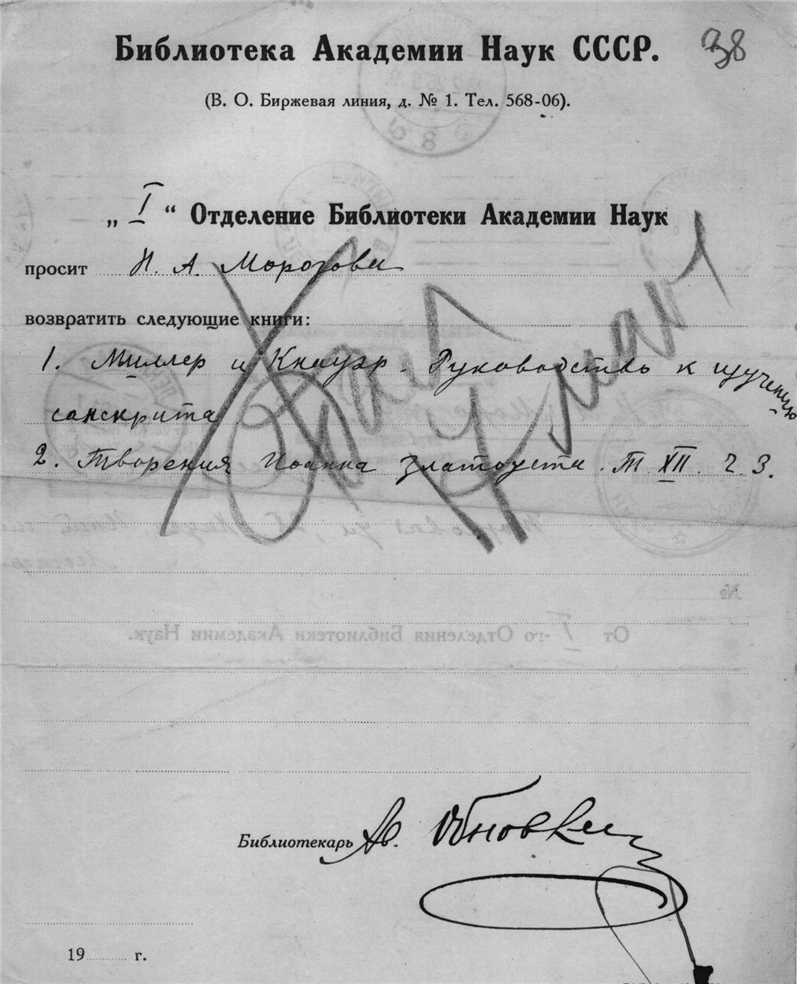 Библиотека Академии Наук СССР. 38
(В. О. Биржевая линия, д. № 1. Тел. 568-06).
„ I “ Отделение Библиотеки Академии Наук
просит Н. А. Морозова
возвратить следующие книги:
1. Миллер и Кнауэр. Руководство к изучению
санскрита
2. Творения Иоанна Златоуста. Т. XII. Ч. 3.
№
От I-го Отделения Библиотеки Академии Наук.
Библиотекарь Ав.
19 г.